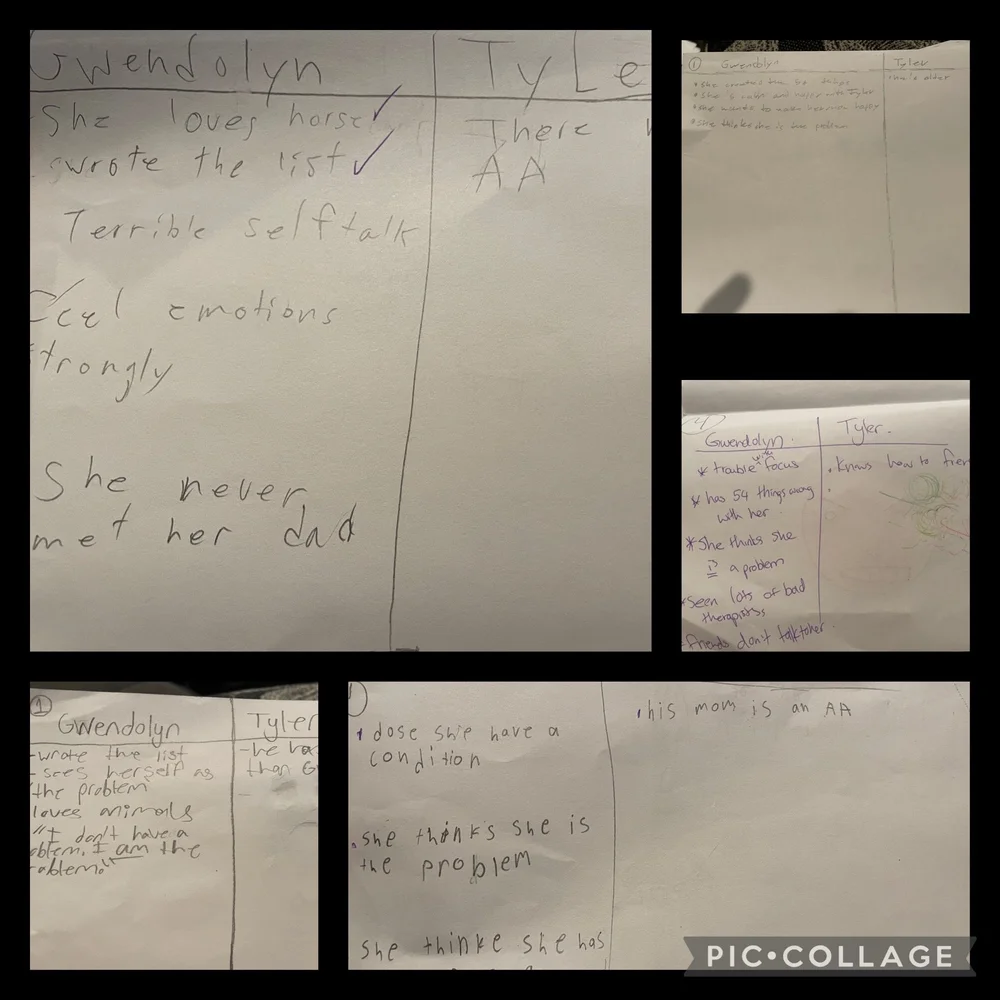 Gwendolyn
TyLe
She loves horse
wrote the list
There
AA
Terrible selftalk
Feel emotions
trongly
She never
met her dad
① Gwendolyn
Tyler
• She created the 54 things
• She is calm and happy with Tyler
• She wants to make her mom happy
• She thinks she is the problem
• he's older
Gwendolyn.
Tyler.
* trouble with focus
* has 54 things wrong
with her.
* She thinks she
is a problem
• Seen lots of bad
therapists
friends don't talk to her.
• Knows how to
•
① Gwendolyn
Tyler
- wrote the list
- sees herself as
the problem
loves animals
"I don't have a
oblem. I am the
oblem."
- he ha
than G
-
• dose she have a
condition
• she thinks she is
the problem
she thinke she has
• his mom is an AA
PIC•COLLAGE